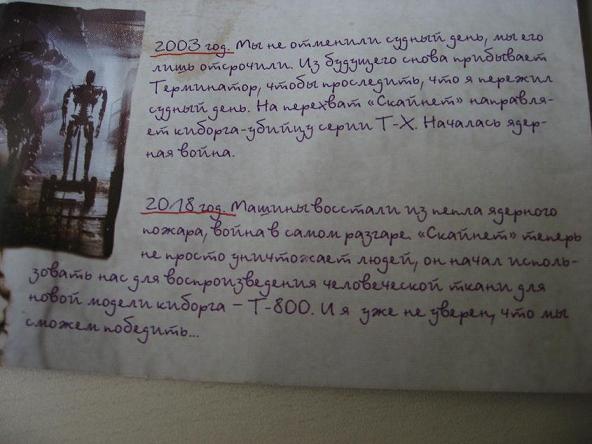 2003 год. Мы не отменили судный день, мы его
лишь отсрочили. Из будущего снова прибывает
Терминатор, чтобы проследить, что я пережил
судный день. На перехват «Скайнет» направля-
ет киборга-убийцу серии Т-Х. Началась ядер-
ная война.
2018 год. Машины восстали из пепла ядерного
пожара, война в самом разгаре. «Скайнет» теперь
не просто уничтожает людей, он начал исполь-
зовать нас для воспроизведения человеческой ткани для
новой модели киборга – Т-800. И я уже не уверен, что мы
сможем победить...